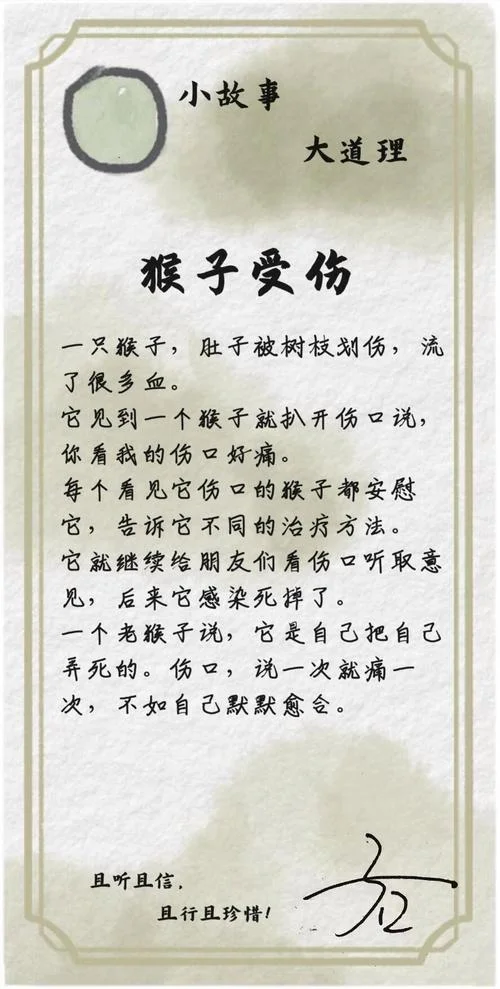 小故事
大道理
猴子受伤
一只猴子，肚子被树枝划伤，流
了很多血。
它见到一个猴子就扒开伤口说，
你看我的伤口好痛。
每个看见它伤口的猴子都安慰
它，告诉它不同的治疗方法。
它就继续给朋友们看伤口听取意
见，后来它感染死掉了。
一个老猴子说，它是自己把自己
弄死的。伤口，说一次就痛一
次，不如自己默默愈合。
且听且信，
且行且珍惜！